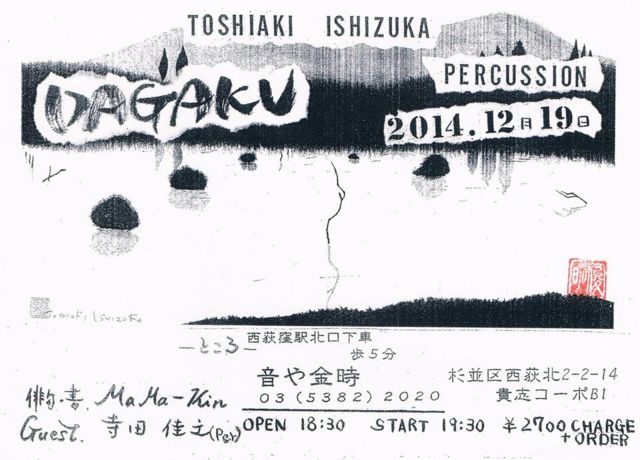 TOSHIAKI ISHIZUKA
DAGAKU
PERCUSSION
2014.12月19日
―ところ―
西荻窪駅北口下車
歩5分
音や金時
03(5382)2020
杉並区西荻北2-2-14
貴志コーポB1
俳句・書 MaMa-Kin
Guest. 寺田 佳之(Per)
OPEN 18:30 START 19:30 ¥2700 CHARGE
+ORDER